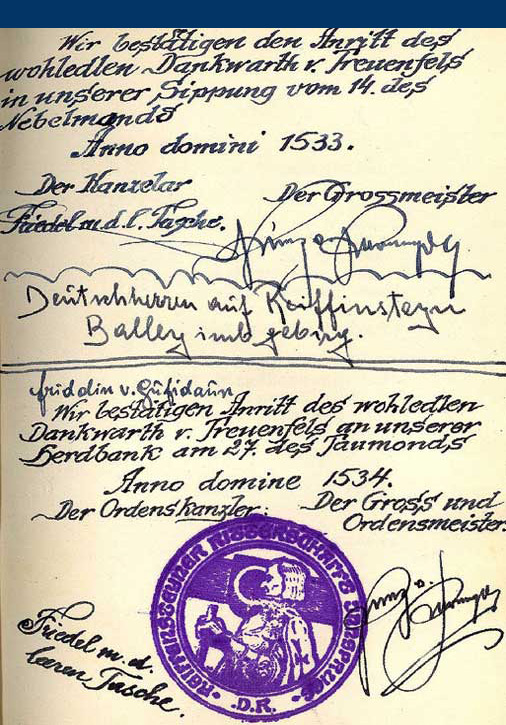 Wir bestätigen den Anritt des
wohledlen Dankwarth v. Treuenfels
in unserer Sippung vom 14. des
Nebelmonds
Anno domini 1533.
Der Kanzelar
Der Grossmeister
Friedel m. d. l. Tasche.
Deutschherren auf Reiffinsteyn
Balley imb gebirg.
friddin v. Gufidaun
Wir bestätigen Anritt des wohledlen
Dankwarth v. Treuenfels an unserer
Herdbank am 27. des Taumonds
Anno domine 1534.
Der Ordenskanzler:
Der Gross und
Ordensmeister:
REIFFENSTEINER RITTERSCHAFT
D.R.
Friedel m. d.
laren Tasche.